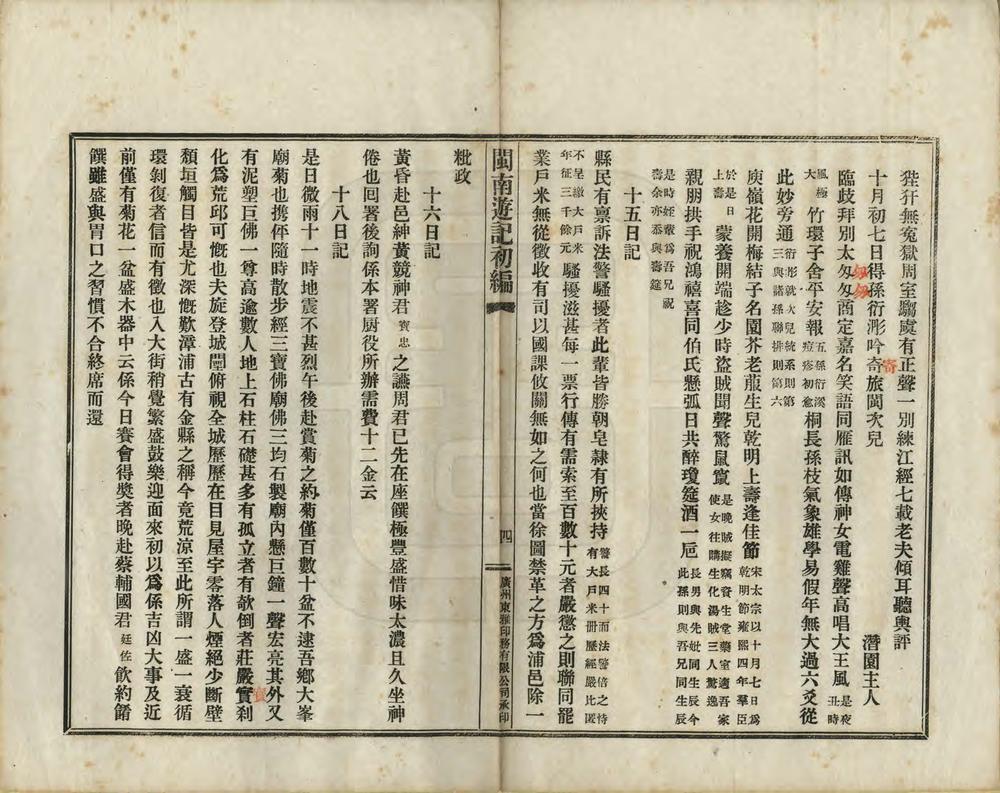 狴犴無冤獄周室騶虞有正聲一別練江經七載老夫傾耳聽輿評
十月初七日得孫衍澎吟寄旅閩次兒　潛園主人
臨歧拜別太匆匆商定嘉名笑語同雁訊如傳神女電雞聲高唱大王風是夜丑時
風極大竹環子舍平安報五孫衍溪痘疹初愈桐長孫枝氣象雄學易假年無大過六爻從
此妙旁通衍澎就次兒統系則第三與諸孫聯排則第六
庾嶺花開梅結子名園芥老菔生兒乾明上壽逢佳節宋太宗以十月七日為乾明節雍熙四年羣臣
於是日上壽蒙養開端趁少時盜賊聞聲驚鼠竄是晚賊擬竊資生堂藥室適吾家使女往購生化湯賊三人驚逸
親朋拱手祝鴻禧喜同伯氏懸弧日共醉瓊筵酒一卮長男與先妣同生辰今此孫則與吾兄同生辰
是時姪輩為吾兄祝壽余亦忝與壽筵
十五日記
縣民有禀訴法警騷擾者此輩皆勝朝皂隸有所挾持警長四十而法警倍之恃有大戶米冊歷經嚴比匿
不呈繳大戶米年征三千餘元騷擾滋甚每一票行傳有需索至百數十元者嚴懲之則聯同罷
業戶米無從徵收有司以國課攸關無如之何也當徐圖禁革之方為浦邑除一
閩南遊記初編　四　廣州東雅印務有限公司承印
粃政
十六日記
黃昏赴邑紳黃競神君寶忠之讌周君已先在座饌極豐盛惜味太濃且久坐神
倦也回署後詢係本署厨役所辦需費十二金云
十八日記
是日微雨十一時地震不甚烈午後赴賞菊之約菊僅百數十盆不逮吾鄉大峯
廟菊也携伻隨時散步經三寶佛廟佛三均石製廟內懸巨鐘一聲宏亮其外又
有泥塑巨佛一尊高逾數人地上石柱石礎甚多有孤立者有欹倒者莊嚴寶刹
化為荒邱可慨也夫旋登城闉俯視全城歷歷在目見屋宇零落人煙絕少斷壁
頹垣觸目皆是尤深慨歎漳浦古有金縣之稱今竟荒涼至此所謂一盛一衰循
環剝復者信而有徵也入大街稍覺繁盛鼓樂迎面來初以為係吉凶大事及近
前僅有菊花一盆盛木器中云係今日賽會得獎者晚赴蔡輔國君廷佐飲約餚
饌雖盛與胃口之習慣不合終席而還